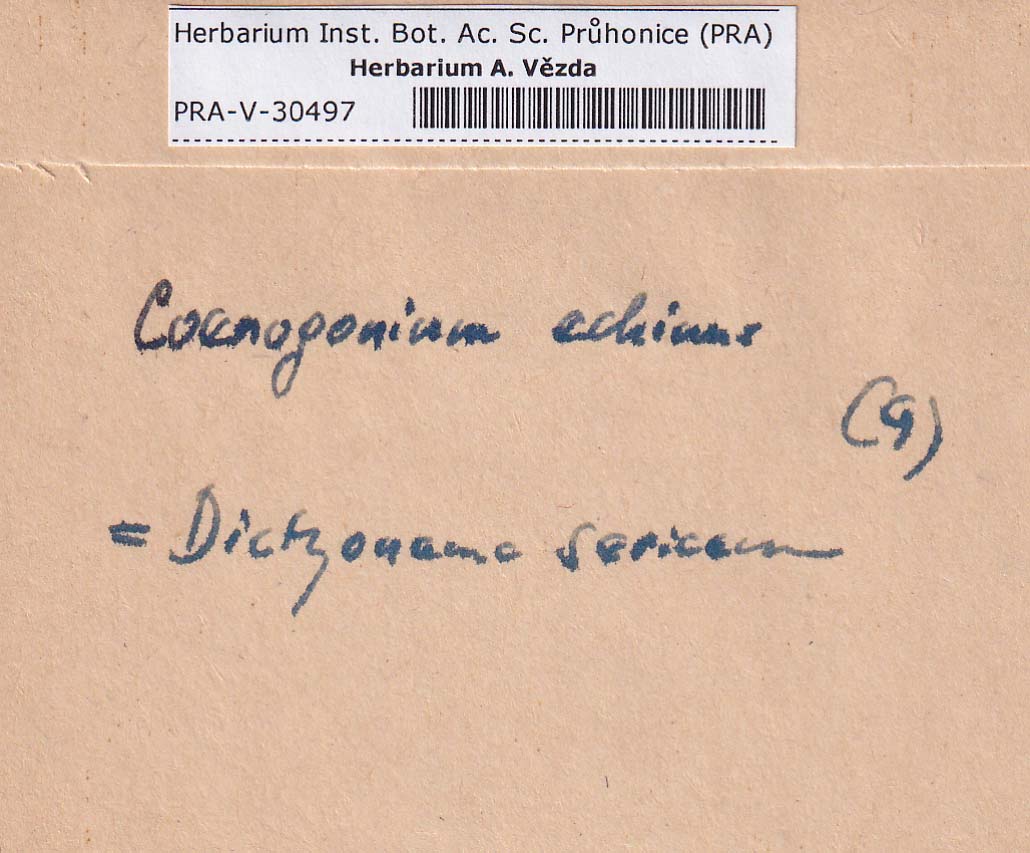 Herbarium Inst. Bot. Ac. Sc. Průhonice (PRA)
Herbarium A. Vězda
PRA-V-30497
Coenogonium
= Dictyonema sericeum